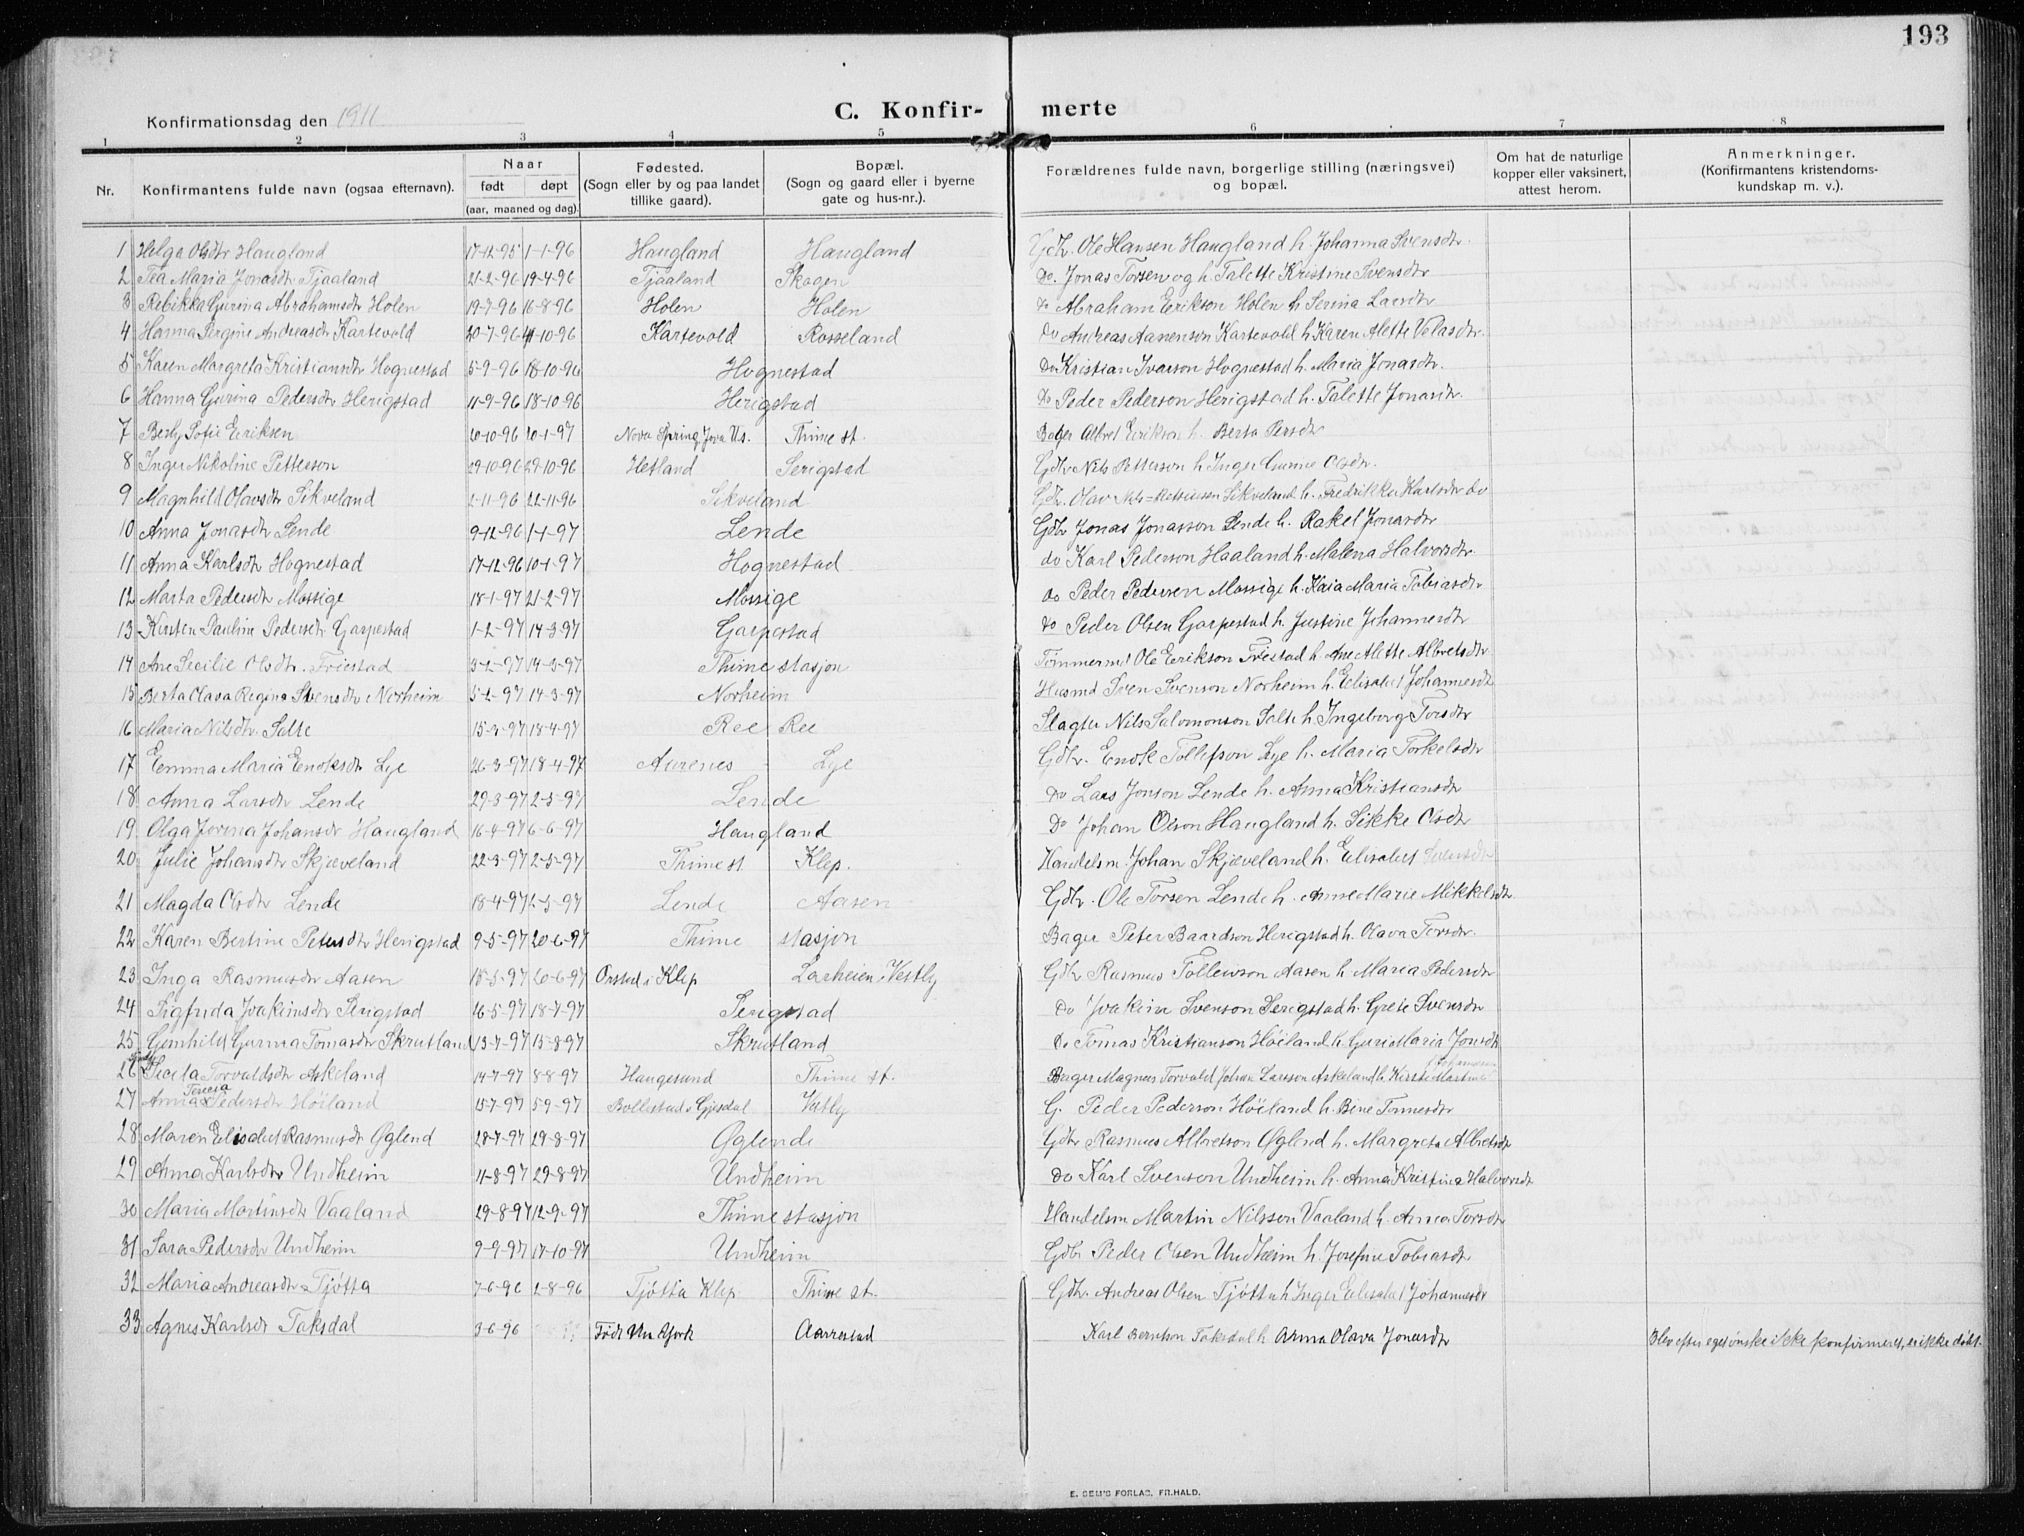 193
C. Konfir- merte
Konfirmationsdag den 1911
1 2 3 4 5 6 7 8
Nr. Konfirmantens fulde navn (ogsaa efternavn). Naar født døpt (aar, maaned og dag). Fødested. (Sogn eller by og paa landet tillike gaard). Bopæl. (Sogn og gaard eller i byerne gate og hus-nr.). Forældrenes fulde navn, borgerlige stilling (næringsvei) og bopæl. Om hat de naturlige kopper eller vaksinert, attest herom. Anmerkninger. (Konfirmantens kristendoms- kundskap m. v.).
1 Helga Olsdtr Haugland 17-12-95 1-1-96 Haugland Haugland Gdbr. Ole Hansen Haugland h. Johanna Svensdtr.
2 Tea Maria Jonasdtr Tjaaland 21-2-96 19-4-96 Tjaaland Skogen Do. Jonas Torsen og h. Talette Kristine Svensdtr
3 Rebikka Gurina Abrahamsdtr Holen 19-7-96 16-8-96 Holen Holen do Abraham Erikson Holen h. Serina Larsdtr
4 Hanna Andreasdtr Kartevold 20-7-96 4-10-96 Kartevold Rosseland Do Andreas Aanenson Kartevold h. Karen Alette Velasdtr.
5 Karen Margreta Kristiansdtr Hognestad 5-9-96 18-10-96 Hognestad Do Kristian Iverson Hognestad h. Maria Jonasdtr.
6 Hanna Gurina Pedersdtr Herigstad 11-9-96 18-10-96 Herigstad do Peder Pederson Herigstad h. Talette Jonasdtr.
7 Berly Sofie Eriksen 20-10-96 10-1-97 Nova Spring, Jova Us. Thime st. Bager Albret Erikson h. Berta Persdtr
8 Inger Nikoline Petterson 29-10-96 29-10-96 Hetland Serigstad Gdbr Nils Petterson h. Inger Gurine Olsdtr.
9 Magnhild Olavsdtr Sikveland 2-11-96 22-11-96 Sikveland Gdbr. Olav Sikveland h. Fredrikke Karlsdtr do
10 Anna Jonasdtr Lende 9-12-96 1-1-97 Lende Gdbr Jonas Jonasson Lende h. Rakel Jonasdtr
11 Anna Karlsdtr Hognestad 17-12-96 10-1-97 Hognestad do Karl Pederson Haaland h. Malena Halvorsdtr
12 Marta Pedersdtr Mossige 18-1-97 21-2-97 Mossige do Peder Pedersen Mossige h. Kaia Maria Tobiasdtr
13 Kirsten Paulina Pedersdtr Garpestad 1-2-97 14-3-97 Garpestad do Peder Olsen Garpestad h. Justine Johannesdtr
14 Ane Secilie Olsdtr. Friestad 3-2-97 14-3-97 Thime stasjon Tømmermd Ole Erikson Friestad h. Ane Alette Albretsdtr
15 Berta Olava Regina Svensdtr Norheim 5-2-97 14-3-97 Norheim Husmd Sven Svenson Norheim h. Elisabet Johannesdtr
16 Maria Nilsdtr. Salte 15-3-97 18-4-97 Ree Ree Slagter Nils Salomonson Salte h. Ingeborg Torsdtr
17 Emma Maria Enoksdtr Lye 26-3-97 18-4-97 Aurenes Lye Gdbr. Enok Tollefson Lye h. Maria Torkelsdtr
18 Anna Larsdtr Lende 29-3-97 2-5-97 Lende do Lars Jonson Lende h. Anna Kristiansdtr
19 Olga Jorina Johansdtr Haugland 16-4-97 6-6-97 Haugland Do Johan Olson Haugland h. Sikke Olsdtr
20 Julie Johansdtr Skjæveland 22-3-97 2-5-97 Thime st Klep. Handelsm. Johan Skjæveland h. Elisabet
21 Magda Olsdtr Lende 18-4-97 2-5-97 Lende Aasen Gdbr. Ole Torsen Lende h. Anne Marie Mikkelsdtr.
22 Karen Bertine Petersdtr Herigstad 9-5-97 20-6-97 Thime stasjon Bager Peter Baardson Herigstad h. Olava Torsdtr.
23 Inga Rasmusdtr Aasen 15-5-97 20-6-97 Orstad i Klep Larheien, Vestly Gdbr Rasmus Tolleivson Aasen h. Maria Pedersdtr
24 Sigfrida Joakimsdtr Serigstad 26-5-97 18-7-97 Serigstad Do Joakim Svenson Serigstad h. Grete Svensdtr
25 Gunhild Gurina Tomasdtr Skrutland 13-7-97 15-8-97 Skrutland Do Tomas Kristianson Høiland h. Guri Maria Jonsdtr
26 Torvaldsdtr Askeland 14-7-97 8-8-97 Haugesund Thime st. Bager Magnus Torvald Johan Larsson Askeland h. Kirsti Martine
27 Anna Teresa Pedersdtr Høiland 15-7-97 5-9-97 Bollestad i Gjesdal Vestly G. Peder Pederson Høiland h. Bine Tønnesdtr
28 Maren Elisabet Rasmusdtr Øglend 28-7-97 29-8-97 Øglend Gdbr Rasmus Albretson Øglend h. Margreta Albretsdtr
29 Anna Karlsdtr Undheim 11-8-97 29-8-97 Undheim do Karl Svenson Undheim h. Anna Kristina Halvorsdtr
30 Maria Martinsdtr Vaaland 29-8-97 12-9-97 Thime stasjon Handelsm Martin Nilsson Vaaland h. Anna Torsdtr
31 Sara Pedersdtr Undheim 9-9-97 17-10-97 Undheim Gdbr Peder Olsen Undheim h. Josefine Tobiasdtr
32 Maria Andreasdtr Tjøtta 7-6-96 2-8-96 Tjøtta Klep. Thime st. Gdbr. Andreas Olsen Tjøtta h. Inger Elisabet Johannesdr
33 Agnes Karlsdr Taksdal 3-6-96 Født Nu York Aarrestad Karl Bernson Taksdal h Anna Olava Jonasdtr Blev efter eget ønske ikke konfirmeret, er ikke døbt.
E. SEM'S FORLAG, FR.HALD.